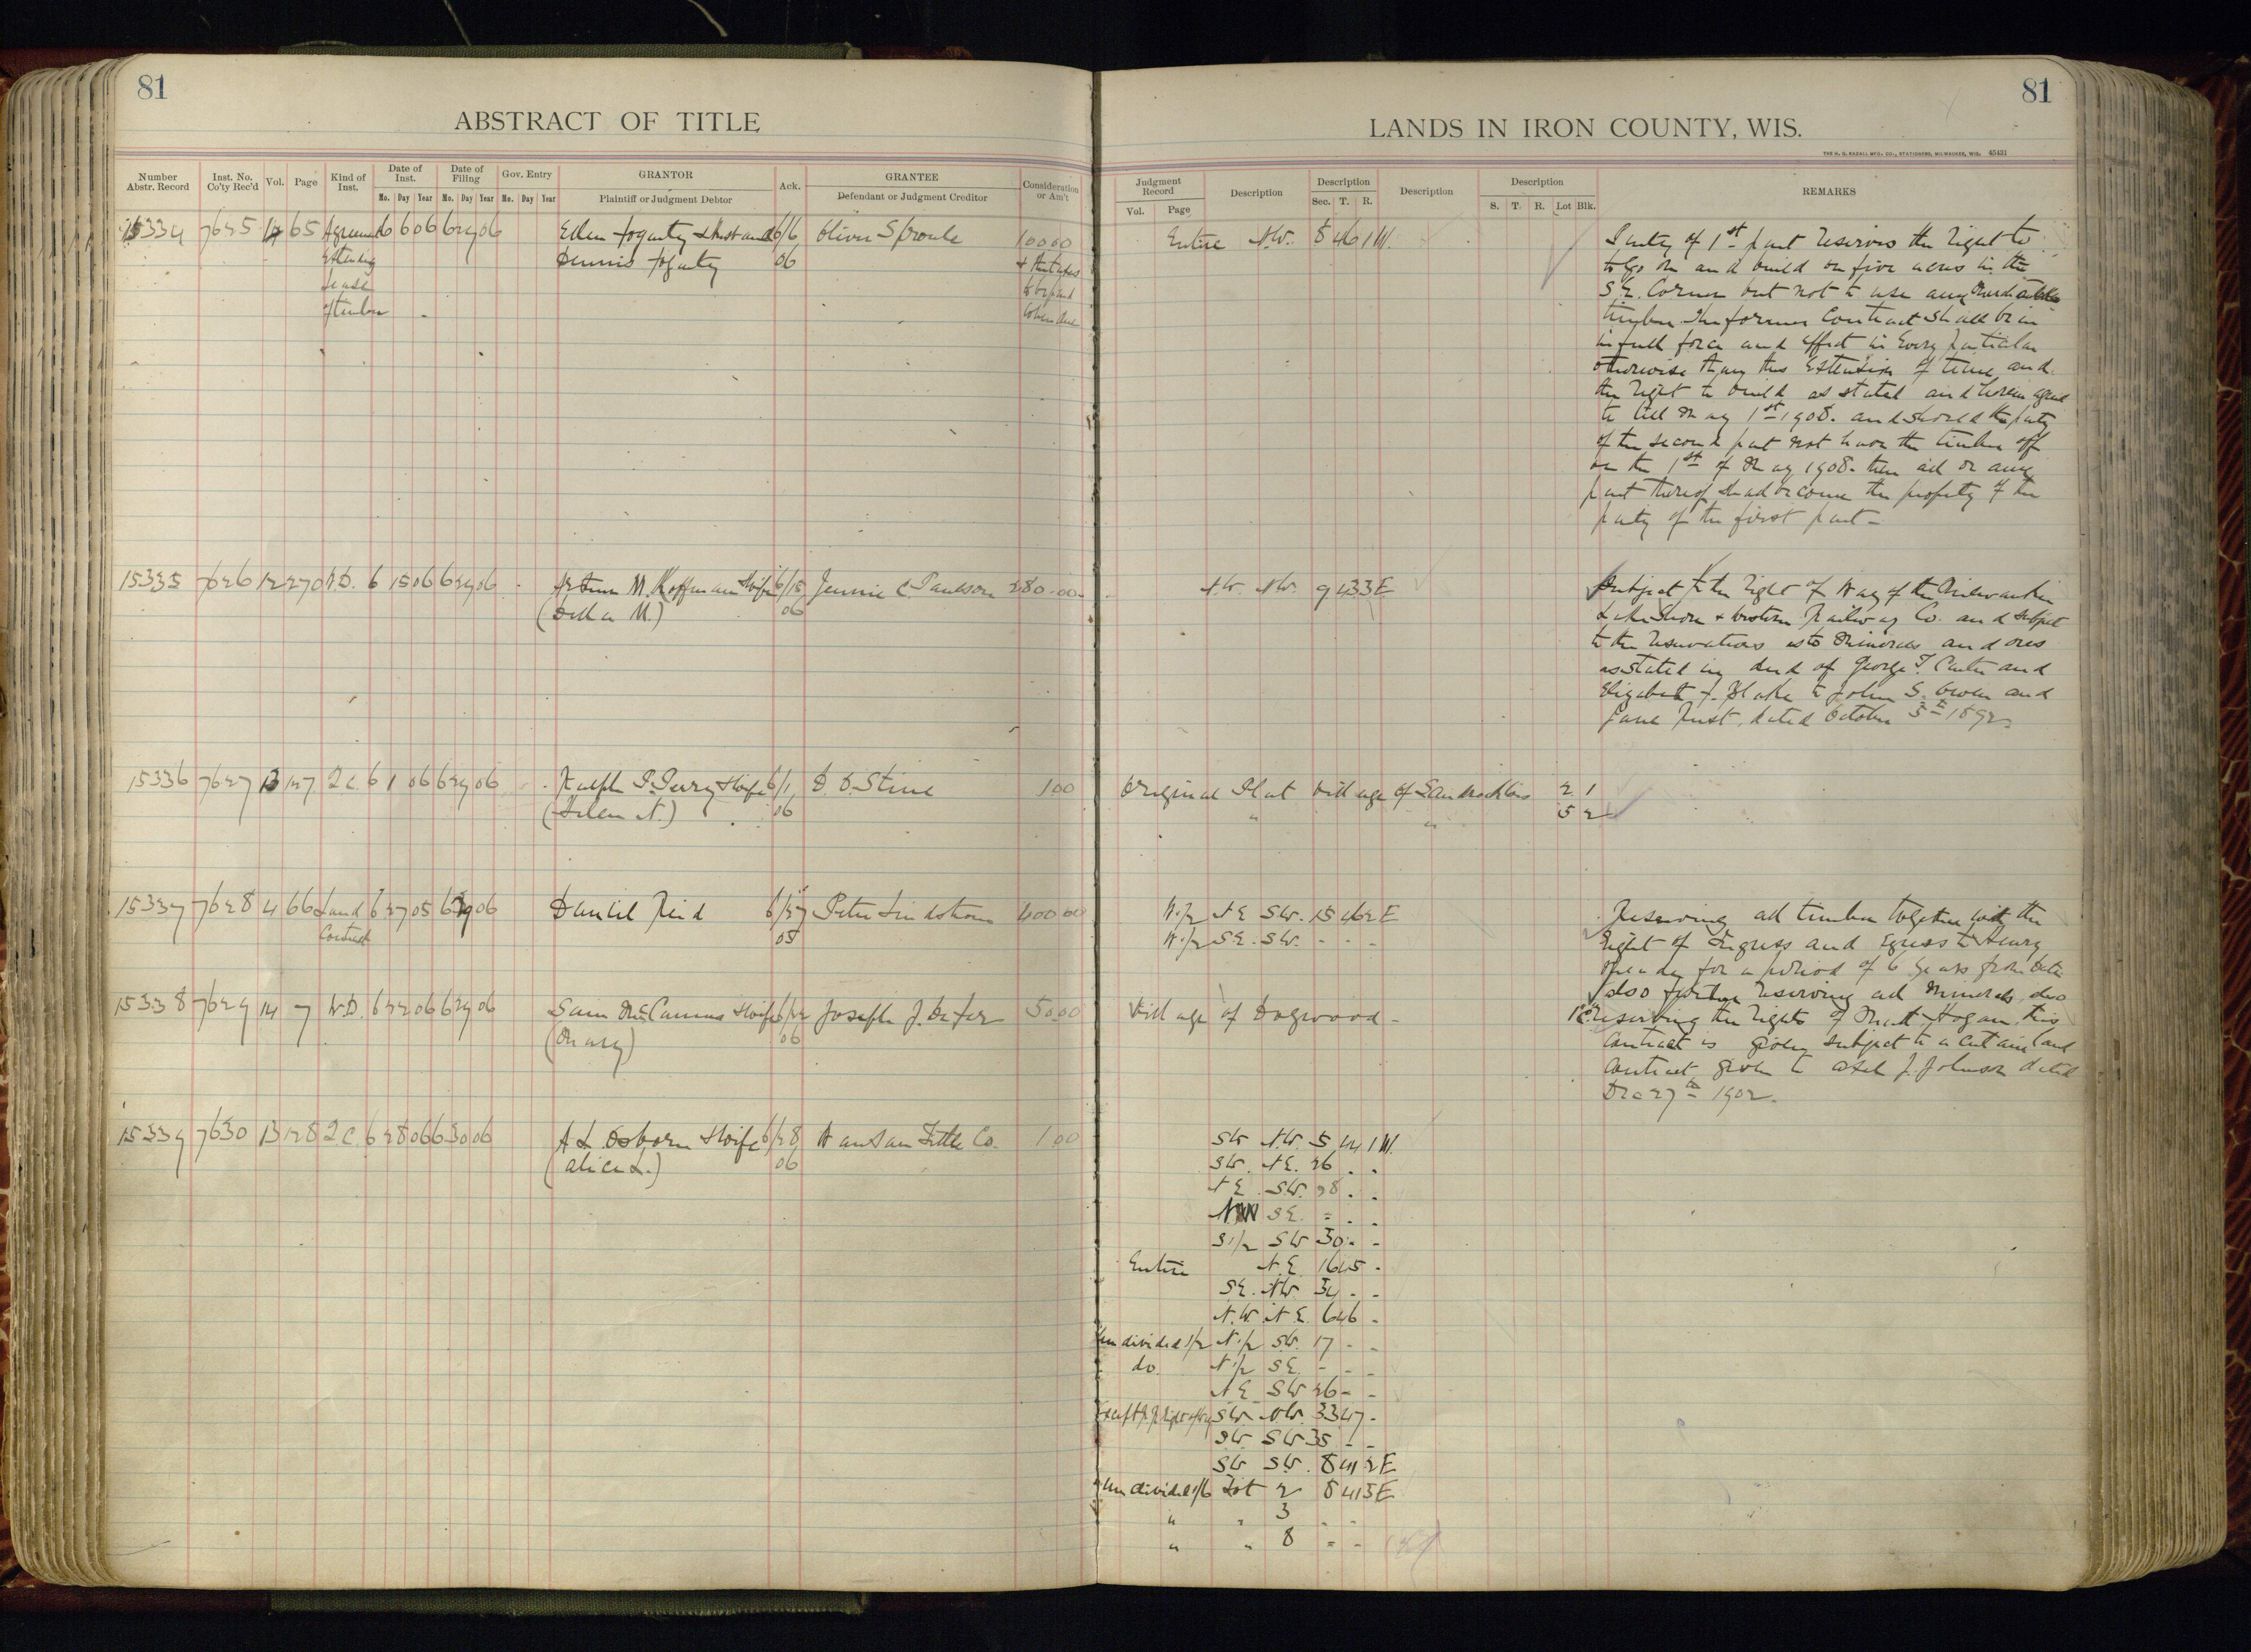 81
ABSTRACT OF TITLE
Number Abstr. Record
Inst. No. Co'ty Rec'd
Vol.
Page
Kind of Inst.
Date of Inst.
Mo. Day Year
Date of Filing
Mo. Day Year
Gov. Entry
Mo. Day Year
GRANTOR
Plaintiff or Judgment Debtor
Ack.
GRANTEE
Defendant or Judgment Creditor
Consideration or Am't
15334 7625 14 65 Agreement 6 6 06 6 29 06 Ellen Fogarty & Husband 6/6 Oliver Sproule 100 00
Extending Dennis Fogarty 06 & the taxes
Lease to be paid
of timber when due
15335 7626 12 270 W.D. 6 15 06 6 29 06 Arthur M. Hoffman & wife 6/15 Jennie C Paulson 280.00
(Della M.) 06
15336 7627 13 127 Q.C. 6 1 06 6 29 06 Ralph P. Perry & wife 6/1 D. D. Stine 1 00
(Helen N.) 06
15337 7628 4 66 Land 6 27 05 6 29 06 Daniel Reid 6/27 Peter Lindstrom 400 00
Contract 05
15338 7629 14 7 W.D. 6 22 06 6 29 06 Sam McCamus & wife 6/22 Joseph J. Defer 50 00
(Mary) 06
15339 7630 13 128 Q.C. 6 28 06 6 30 06 A L Osborn & wife 6/28 Wausau Title Co. 1 00
(Alice L.) 06
81
LANDS IN IRON COUNTY, WIS.
THE H. G. RAZALL MFG. CO., STATIONERS, MILWAUKEE, WIS. 45421
Judgment Record
Vol. Page
Description
Description
Sec. T. R.
Description
Description
S. T. R. Lot Blk.
REMARKS
Entire N.W. 8 46 1 W.
Party of 1st part reserves the right to
to go on and build on five acres in the
S.E. Corner but not to use any merchantable
timber. The former Contract shall be in
in full force and effect in every particular
otherwise than this Extension of time and
the right to build as stated and herein agree
to till May 1st 1908. and should the party
of the second part not have the timber off
on the 1st of May 1908. then all or any
part thereof shall become the property of the
party of the first part -
N.W. N.W. 9 43 3 E
Subject to the right of Way of the Milwaukee
Lake Shore & Western Railway Co. and subject
to the reservations as to Minerals and ores
as stated in deed of George T Carter and
Elizabeth F. Blake to John S. Owen and
Jane Rust, dated October 5th 1892.
Original Plat Village of 2 1
" " 5 2
W.1/2 N E SW. 15 46 2 E
W.1/2 S.E. S.W. - - -
Reserving all timber together with the
Right of Ingress and Egress to Henry
Meade for a period of 6 years from date
also further reserving all Minerals also
reserving the rights of Matt Hogan. this
Contract is given subject to a certain land
contract given to Axel J. Johnson dated
Dec 27th 1902.
Village of Dogwood -
SW N.W. 5 44 1 W.
SW. N.E. 26 - -
N E S.W. 28 - -
NW S.E. = - -
S1/2 SW 30 - -
Entire N.E. 16 45 -
S.E. N.W. 34 - -
N.W. N.E. 6 46 -
Undivided 1/2 N.1/2 S.W. 17 - -
do. N 1/2 S.E. - - -
N E S W 26 - -
Except R.R. Right of Way SW N.W. 33 47 -
S.W. SW 35 - -
SW SW. 8 41 2 E
Undivided 1/6 Lot 2 8 41 3 E
" " 3 - -
" " 8 = -